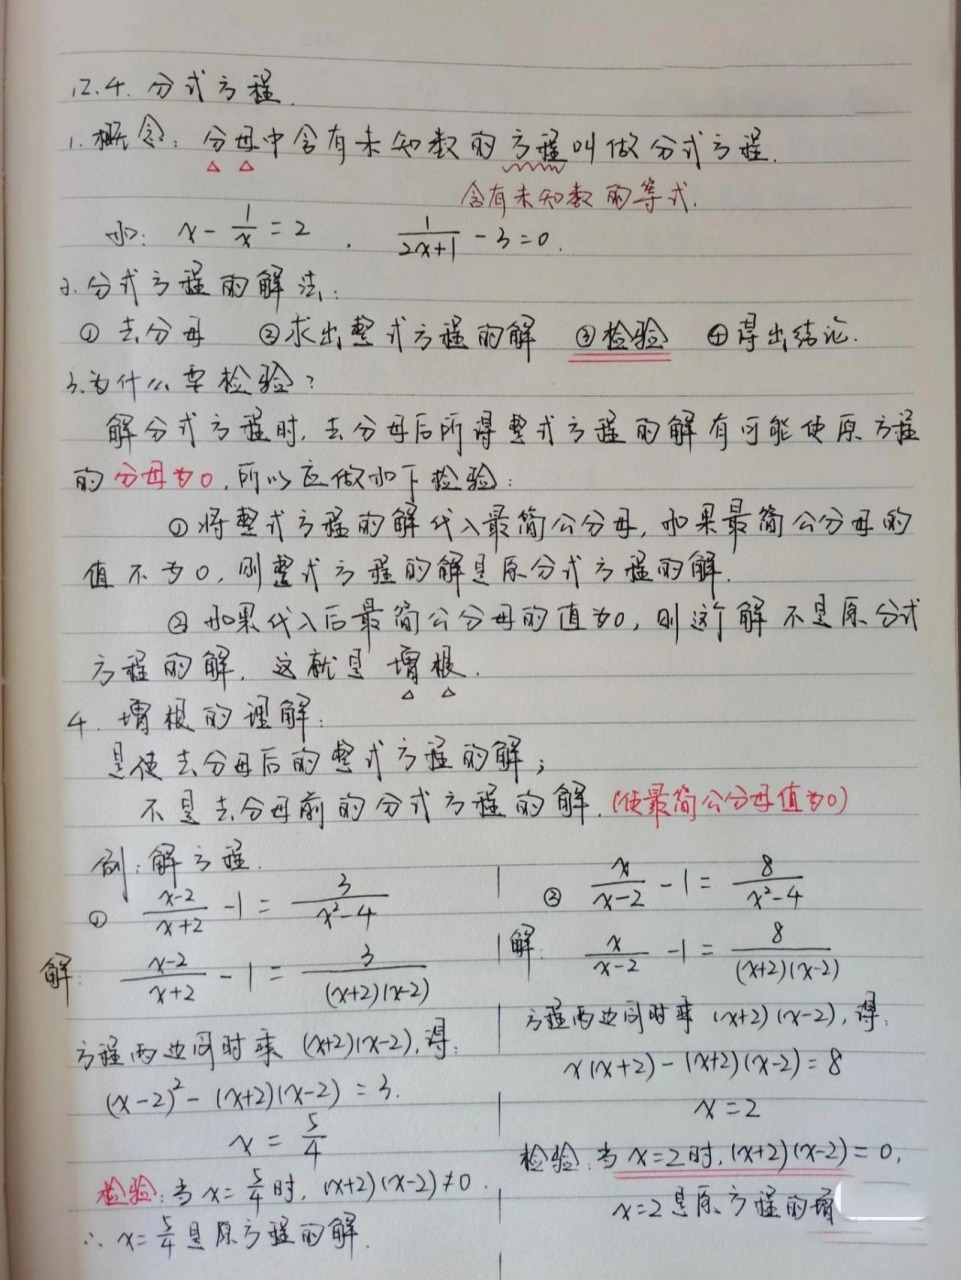 12.4. 分式方程.
1. 概念: 分母中含有未知数的方程叫做分式方程.
含有未知数的等式.
如: x - 1/x = 2 , 1/(2x+1) - 3 = 0.
2. 分式方程的解法:
① 去分母 ②求出整式方程的解 ③检验 ④得出结论.
3.为什么要检验?
解分式方程时, 去分母后所得整式方程的解有可能使原方程
的分母为0, 所以应做如下检验:
①将整式方程的解代入最简公分母, 如果最简公分母的
值不为0, 则整式方程的解是原分式方程的解.
② 如果代入后最简公分母的值为0, 则这个解不是原分式
方程的解, 这就是增根.
4. 增根的理解:
是使去分母后的整式方程的解;
不是去分母前的分式方程的解. (使最简公分母值为0)
例: 解方程.
① (x-2)/(x+2) - 1 = 3/(x²-4)
解: (x-2)/(x+2) - 1 = 3/((x+2)(x-2))
方程两边同时乘 (x+2)(x-2), 得:
(x-2)² - (x+2)(x-2) = 3.
x = 5/4
检验: 当 x = 5/4 时, (x+2)(x-2) ≠ 0.
∴ x = 5/4 是原方程的解.
② x/(x-2) - 1 = 8/(x²-4)
解: x/(x-2) - 1 = 8/((x+2)(x-2))
方程两边同时乘 (x+2)(x-2), 得:
x(x+2) - (x+2)(x-2) = 8
x = 2
检验: 当 x=2时, (x+2)(x-2) = 0,
x=2是原方程的增